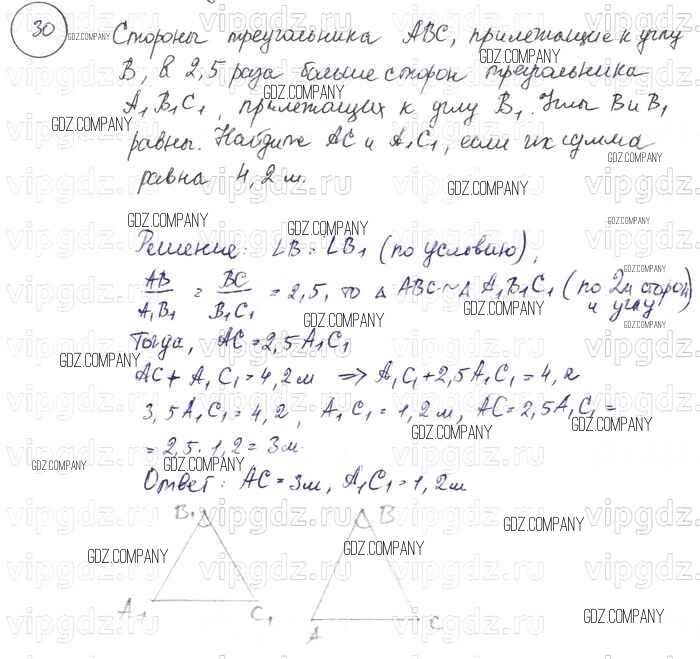 30
Стороны треугольника ABC, прилежащие к углу
B, в 2,5 раза больше сторон треугольника
A₁B₁C₁, прилежащих к углу B₁. Углы B и B₁
равны. Найдите AC и A₁C₁, если их сумма
равна 4,2 м.
Решение: ∠B = ∠B₁ (по условию),
AB/A₁B₁ = BC/B₁C₁ = 2,5, то △ ABC ~ △ A₁B₁C₁ (по 2м сторон
и углу)
Тогда, AC = 2,5 A₁C₁
AC + A₁C₁ = 4,2 м ⇒ A₁C₁ + 2,5A₁C₁ = 4,2
3,5A₁C₁ = 4,2, A₁C₁ = 1,2 м, AC = 2,5A₁C₁ =
= 2,5 · 1,2 = 3 м
Ответ: AC = 3м, A₁C₁ = 1,2 м
B₁ B
A₁ C₁ A C
GDZ.COMPANY
vipgdz.ru